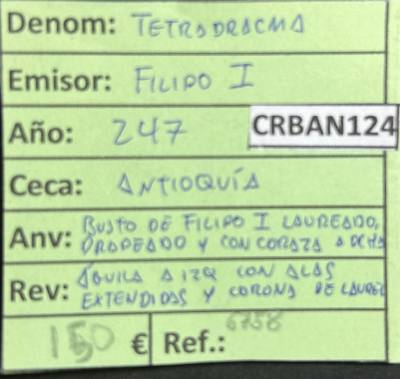 Denom: TETRADRACMA
Emisor: FILIPO I
Año: 247 CRBAN124
Ceca: ANTIOQUÍA
Anv: BUSTO DE FILIPO I LAUREADO,
DRAPEADO Y CON CORAZA A DCHA
Rev: ÁGUILA A IZQ CON ALAS
EXTENDIDAS Y CORONA DE LAUREL
150 € Ref.: 6758